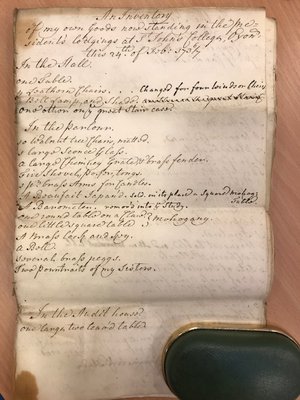 An Inventory
of my own Goods now standing in the Pre-
sident's lodgings at St John's College, Oxon
this 24th of Feb:
In the Hall.
one Table.
Leathorn Chairs. changed for four windsor Chairs
a Bell Lamp, and Shade.
one other upon great Stair case.
In the parlour.
walnut tree Chairs, matted.
a large Sconce Glass.
a large Chimney Grate & brass fender.
fire Shovel, Poker, tongs.
brass Arms for Candles.
A Breakfast Japand. sold, in its place a Square mahog:
Table.
A Barometer, remov'd into the Study.
one round table on a Claw
one little square table mahogany.
A Brass lock and Key.
a Bell.
Several brass peggs.
Two Pourtraits of my Sisters.
In the Audit house
one large, two leav'd table